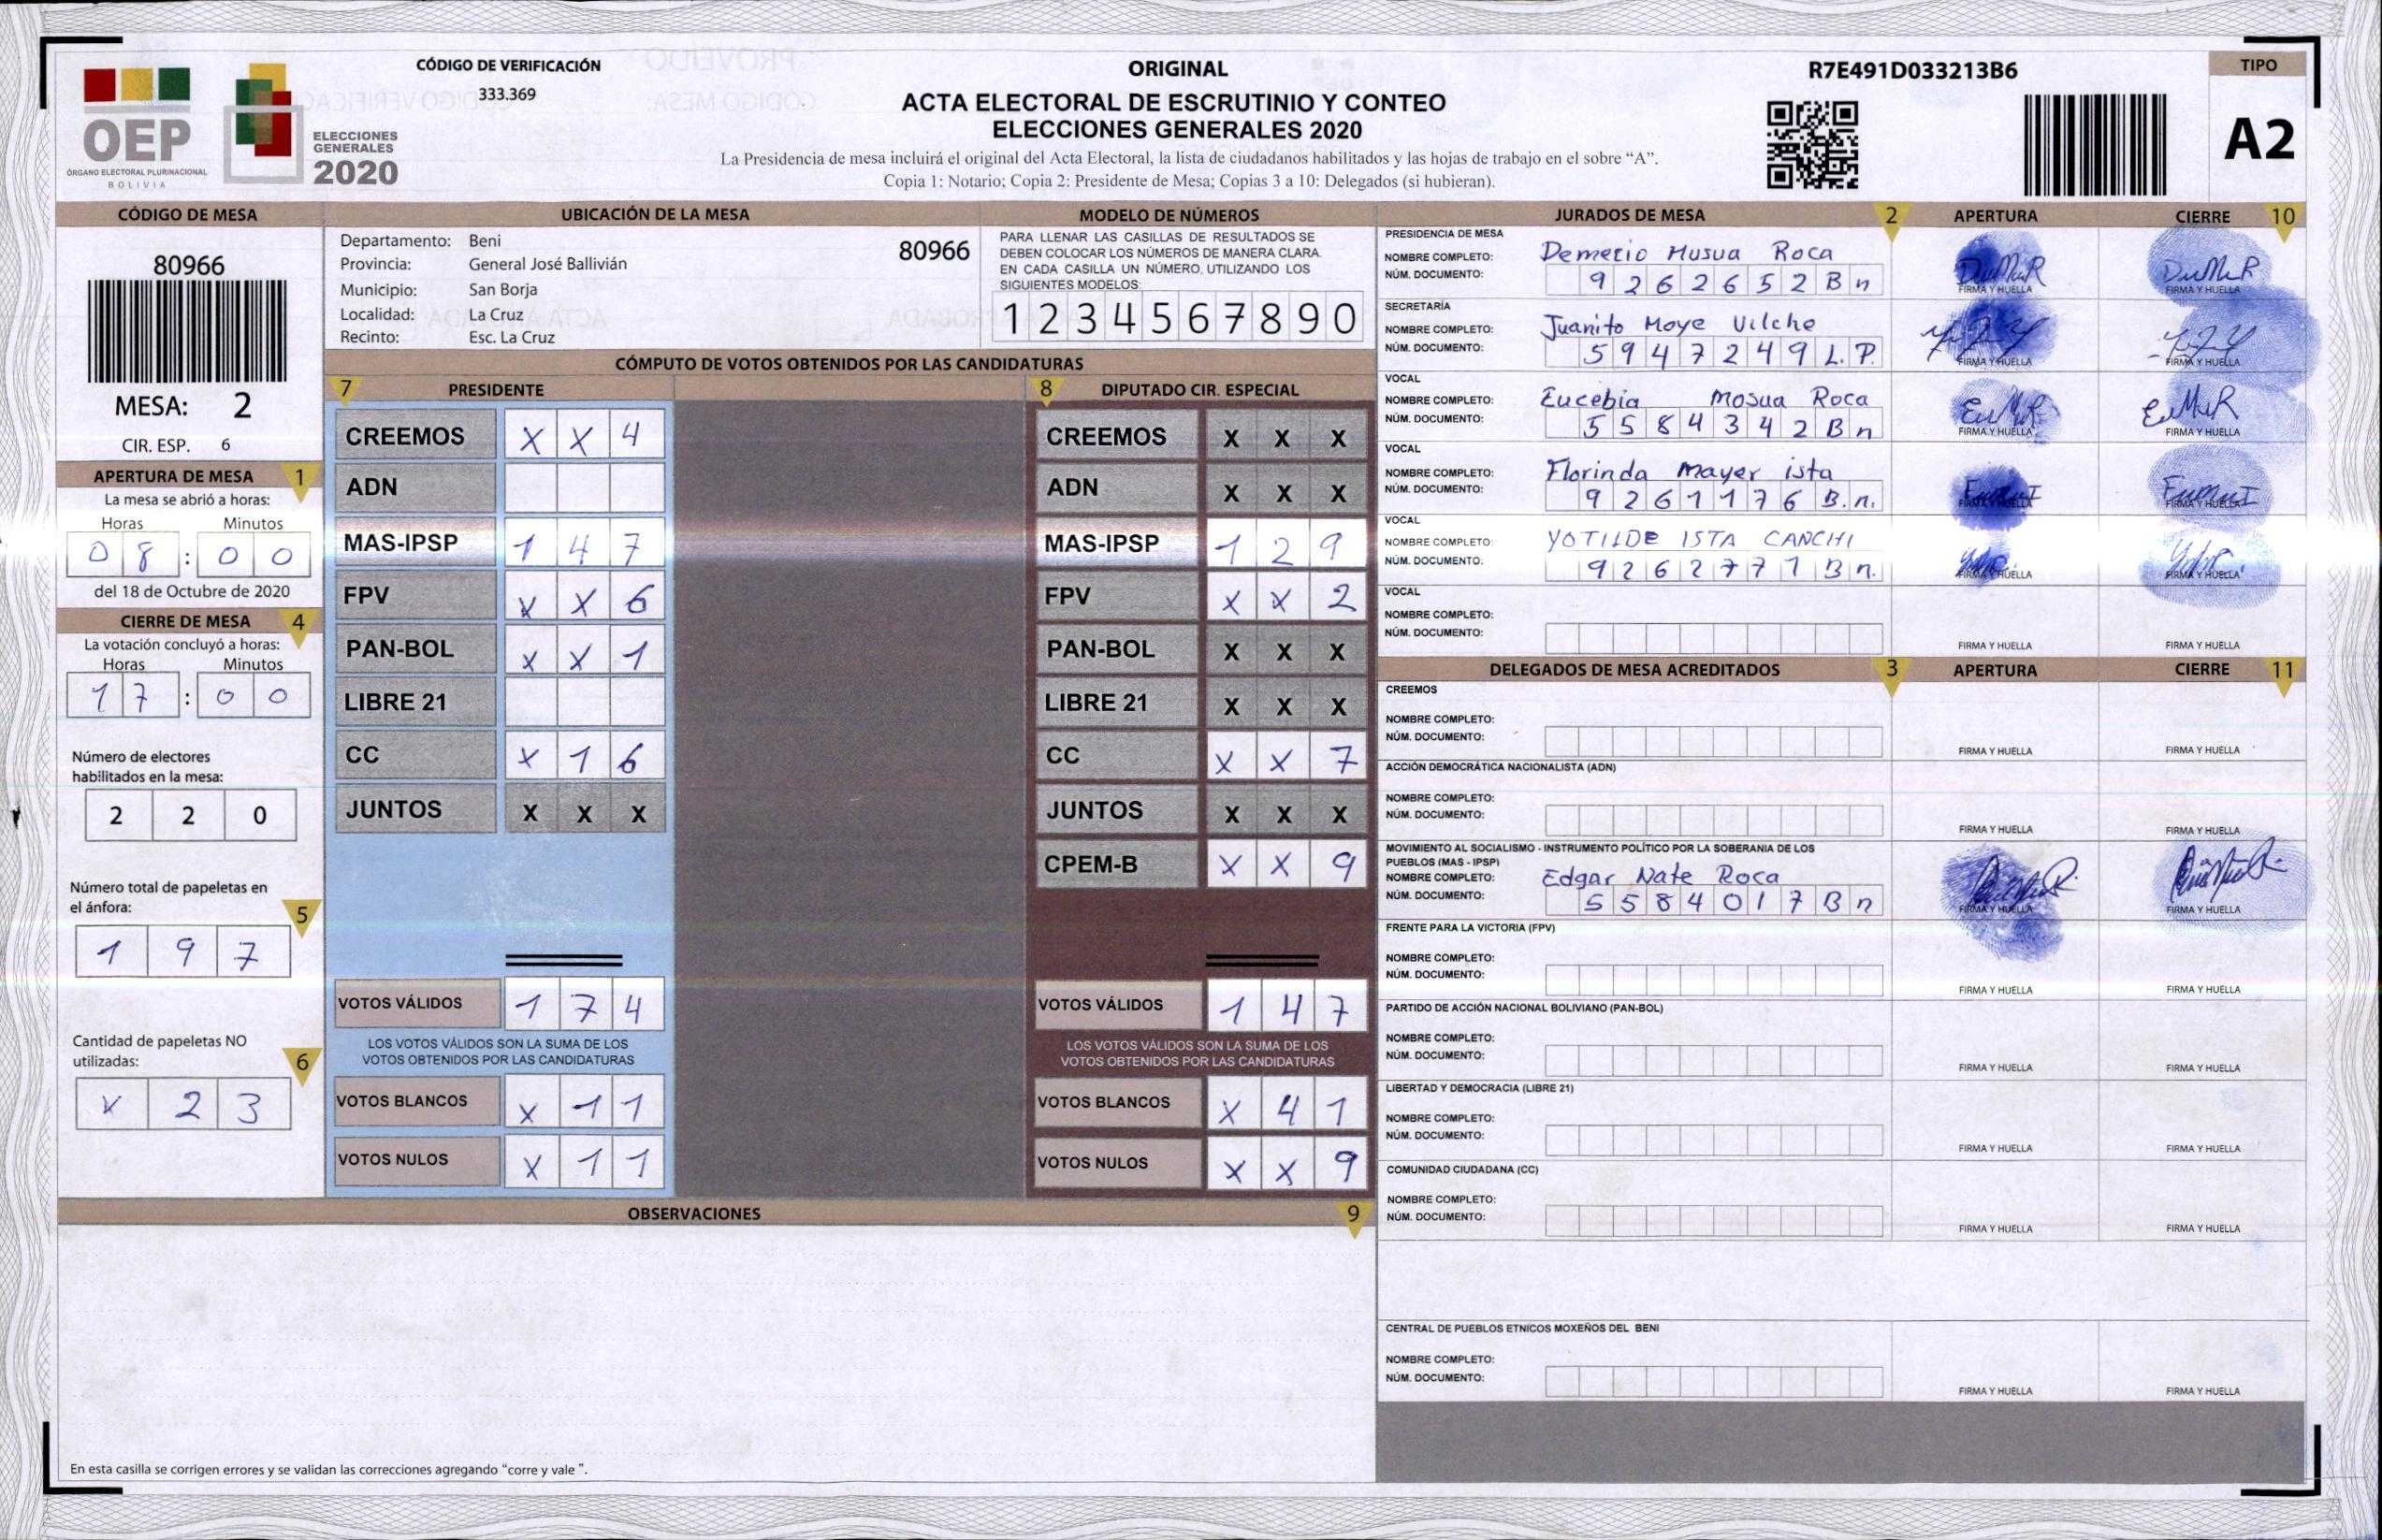 CÓDIGO DE VERIFICACIÓN
333.369
OEP
ÓRGANO ELECTORAL PLURINACIONAL
BOLIVIA
ELECCIONES
GENERALES
2020
ORIGINAL
ACTA ELECTORAL DE ESCRUTINIO Y CONTEO
ELECCIONES GENERALES 2020
La Presidencia de mesa incluirá el original del Acta Electoral, la lista de ciudadanos habilitados y las hojas de trabajo en el sobre “A”.
Copia 1: Notario; Copia 2: Presidente de Mesa; Copias 3 a 10: Delegados (si hubieran).
R7E491D033213B6
TIPO
A2
CÓDIGO DE MESA
80966
MESA: 2
CIR. ESP. 6
APERTURA DE MESA 1
La mesa se abrió a horas:
Horas Minutos
0 8 : 0 0
del 18 de Octubre de 2020
CIERRE DE MESA 4
La votación concluyó a horas:
Horas Minutos
1 7 : 0 0
Número de electores
habilitados en la mesa:
2 2 0
Número total de papeletas en
el ánfora:
5
1 9 7
Cantidad de papeletas NO
utilizadas:
6
X 2 3
UBICACIÓN DE LA MESA
Departamento: Beni
80966
Provincia: General José Ballivián
Municipio: San Borja
Localidad: La Cruz
Recinto: Esc. La Cruz
MODELO DE NÚMEROS
PARA LLENAR LAS CASILLAS DE RESULTADOS SE
DEBEN COLOCAR LOS NÚMEROS DE MANERA CLARA.
EN CADA CASILLA UN NÚMERO, UTILIZANDO LOS
SIGUIENTES MODELOS:
1 2 3 4 5 6 7 8 9 0
CÓMPUTO DE VOTOS OBTENIDOS POR LAS CANDIDATURAS
7 PRESIDENTE
CREEMOS X X 4
ADN
MAS-IPSP 1 4 7
FPV X X 6
PAN-BOL X X 1
LIBRE 21
CC X 1 6
JUNTOS X X X
VOTOS VÁLIDOS 1 7 4
LOS VOTOS VÁLIDOS SON LA SUMA DE LOS
VOTOS OBTENIDOS POR LAS CANDIDATURAS
VOTOS BLANCOS X 1 1
VOTOS NULOS X 1 1
8 DIPUTADO CIR. ESPECIAL
CREEMOS X X X
ADN X X X
MAS-IPSP 1 2 9
FPV X X 2
PAN-BOL X X X
LIBRE 21 X X X
CC X X 7
JUNTOS X X X
CPEM-B X X 9
VOTOS VÁLIDOS 1 4 7
LOS VOTOS VÁLIDOS SON LA SUMA DE LOS
VOTOS OBTENIDOS POR LAS CANDIDATURAS
VOTOS BLANCOS X 4 1
VOTOS NULOS X X 9
OBSERVACIONES 9
En esta casilla se corrigen errores y se validan las correcciones agregando “corre y vale ”.
JURADOS DE MESA 2 APERTURA CIERRE 10
PRESIDENCIA DE MESA
NOMBRE COMPLETO: Demetrio Musua Roca
NÚM. DOCUMENTO: 9 2 6 2 6 5 2 B n
FIRMA Y HUELLA FIRMA Y HUELLA
SECRETARÍA
NOMBRE COMPLETO: Juanito Moye Vilche
NÚM. DOCUMENTO: 5 9 4 7 2 4 9 L. P.
FIRMA Y HUELLA FIRMA Y HUELLA
VOCAL
NOMBRE COMPLETO: Eucebia Mosua Roca
NÚM. DOCUMENTO: 5 5 8 4 3 4 2 B n
FIRMA Y HUELLA FIRMA Y HUELLA
VOCAL
NOMBRE COMPLETO: Florinda Mayer ista
NÚM. DOCUMENTO: 9 2 6 1 1 7 6 B. n.
FIRMA Y HUELLA FIRMA Y HUELLA
VOCAL
NOMBRE COMPLETO: YOTILDE ISTA CANCHI
NÚM. DOCUMENTO: 9 2 6 2 7 7 1 B n.
FIRMA Y HUELLA FIRMA Y HUELLA
VOCAL
NOMBRE COMPLETO:
NÚM. DOCUMENTO:
FIRMA Y HUELLA FIRMA Y HUELLA
DELEGADOS DE MESA ACREDITADOS 3 APERTURA CIERRE 11
CREEMOS
NOMBRE COMPLETO:
NÚM. DOCUMENTO:
FIRMA Y HUELLA FIRMA Y HUELLA
ACCIÓN DEMOCRÁTICA NACIONALISTA (ADN)
NOMBRE COMPLETO:
NÚM. DOCUMENTO:
FIRMA Y HUELLA FIRMA Y HUELLA
MOVIMIENTO AL SOCIALISMO - INSTRUMENTO POLÍTICO POR LA SOBERANIA DE LOS
PUEBLOS (MAS - IPSP)
NOMBRE COMPLETO: Edgar Nate Roca
NÚM. DOCUMENTO: 5 5 8 4 0 1 7 B n
FIRMA Y HUELLA FIRMA Y HUELLA
FRENTE PARA LA VICTORIA (FPV)
NOMBRE COMPLETO:
NÚM. DOCUMENTO:
FIRMA Y HUELLA FIRMA Y HUELLA
PARTIDO DE ACCIÓN NACIONAL BOLIVIANO (PAN-BOL)
NOMBRE COMPLETO:
NÚM. DOCUMENTO:
FIRMA Y HUELLA FIRMA Y HUELLA
LIBERTAD Y DEMOCRACIA (LIBRE 21)
NOMBRE COMPLETO:
NÚM. DOCUMENTO:
FIRMA Y HUELLA FIRMA Y HUELLA
COMUNIDAD CIUDADANA (CC)
NOMBRE COMPLETO:
NÚM. DOCUMENTO:
FIRMA Y HUELLA FIRMA Y HUELLA
CENTRAL DE PUEBLOS ETNICOS MOXEÑOS DEL BENI
NOMBRE COMPLETO:
NÚM. DOCUMENTO:
FIRMA Y HUELLA FIRMA Y HUELLA